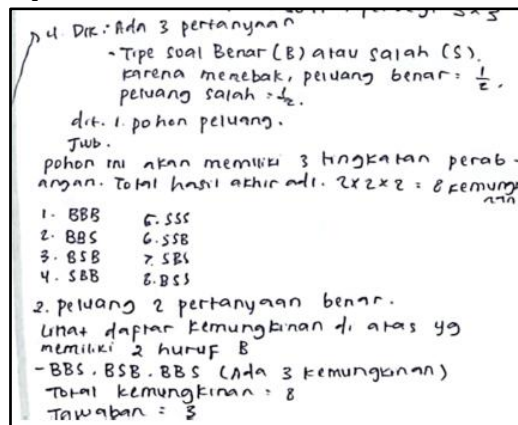 4. Dik: Ada 3 pertanyaan
- Tipe soal Benar (B) atau salah (S).
karena menebak, peluang benar = 1/2.
peluang salah = 1/2.
dit. 1. pohon peluang.
Jwb.
pohon ini akan memiliki 3 tingkatan perab-
angan. Total hasil akhir adl. 2x2x2 = 8 kemung
nan
1. BBB 5. SSS
2. BBS 6. SSB
3. BSB 7. SBS
4. SBB 8. BSS
2. peluang 2 pertanyaan benar.
Lihat daftar kemungkinan di atas yg
memiliki 2 huruf B
- BBS. BSB. BBS (Ada 3 kemungkinan)
Total kemungkinan = 8
Jawaban = 3